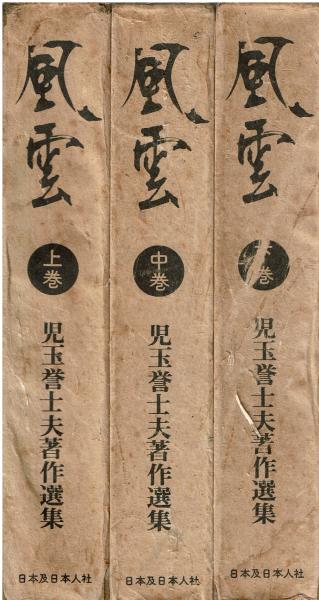 風雲
上巻
児玉誉士夫著作選集
日本及日本人社
風雲
中巻
児玉誉士夫著作選集
日本及日本人社
風雲
下巻
児玉誉士夫著作選集
日本及日本人社